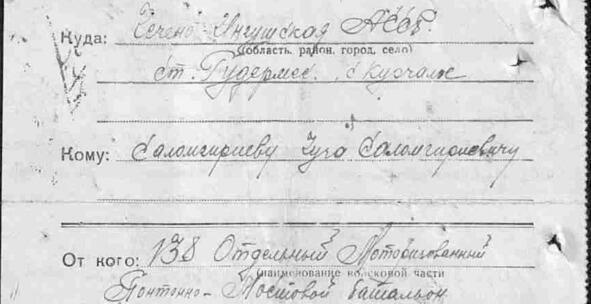 Куда: Чечено Ингушская АССР.
(область, район, город, село)
ст. Гудермес. с Курчалой
Кому: Саломгириеву Саломгириевичу
От кого: 138 Отдельный Мотоизованный
(наименование войсковой части
Понтонно-Мостовой батальон